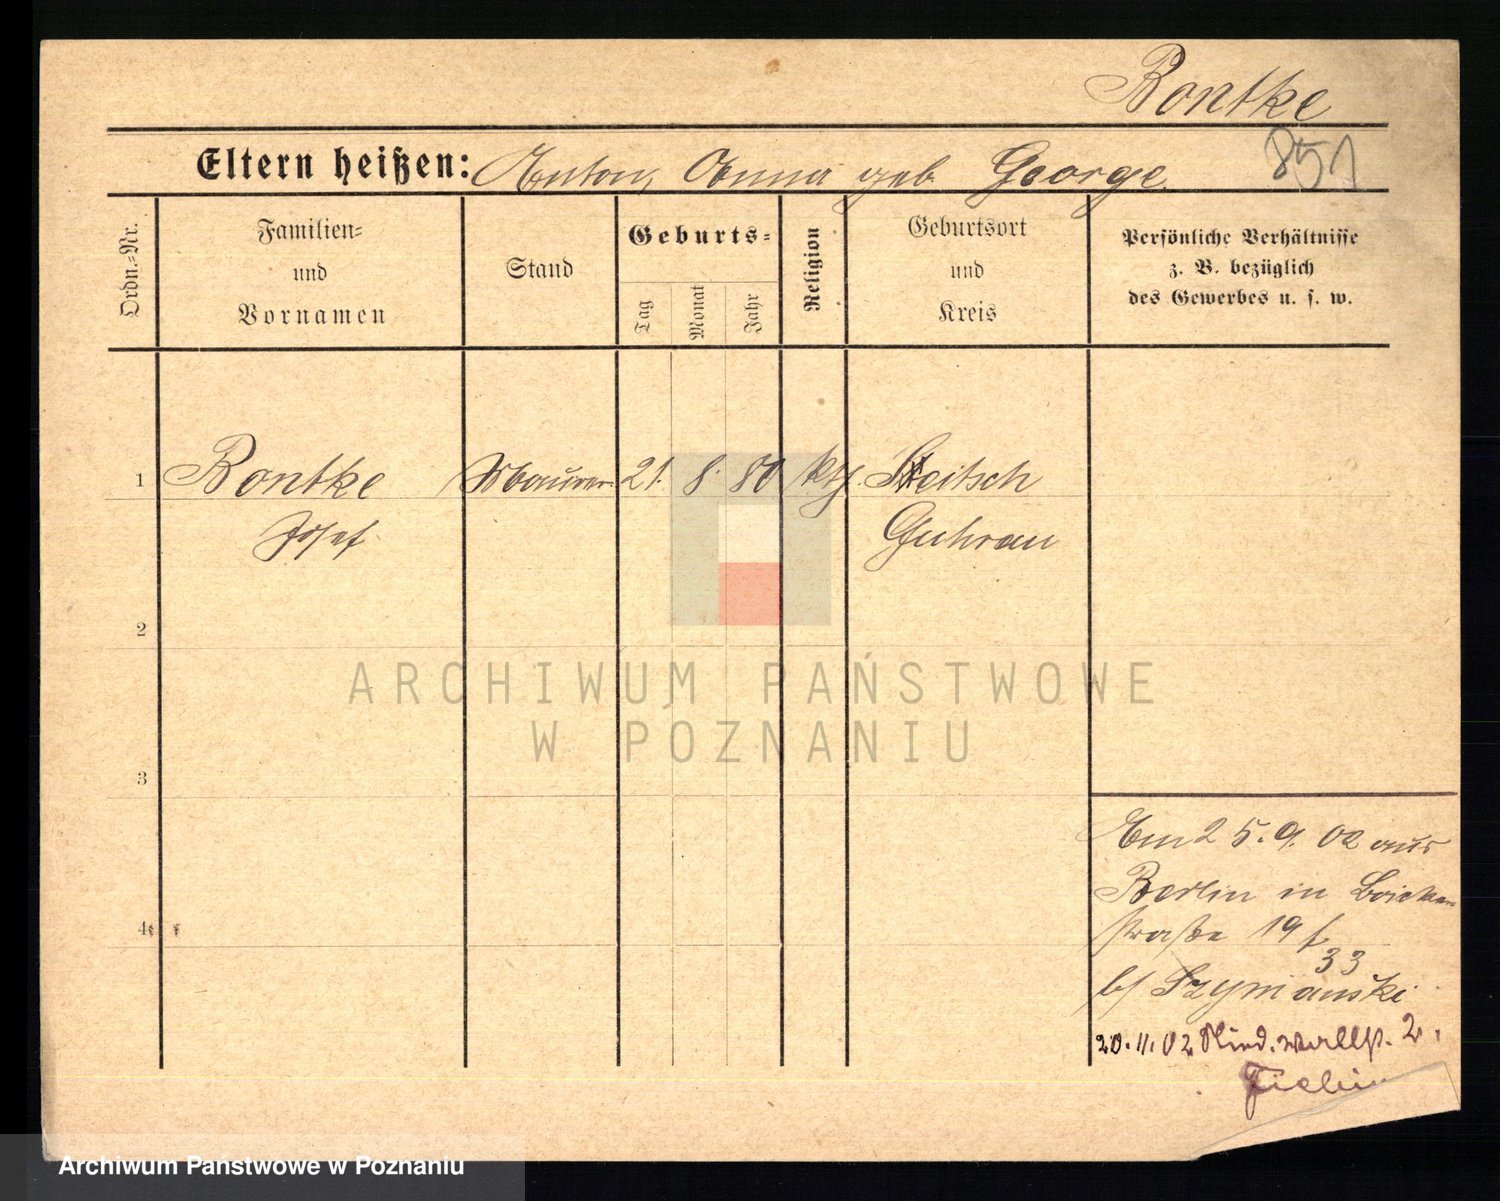 Bontke
Eltern heißen: Anton, Anna geb George
851
Ordn.-Nr.
Familien-
und
Vornamen
Stand
Geburts-
Tag
Monat
Jahr
Religion
Geburtsort
und
Kreis
Persönliche Verhältnisse
z. B. bezüglich
des Gewerbes u. s. w.
1 Bontke Maurer 21. 8. 80 kth. Seitsch
Josef Guhrau
2
ARCHIWUM PAŃSTWOWE
W POZNANIU
3
4
Am 25.9.02 aus
Berlin in
straße 19 f
33
b/ Szymanski
20.11.02 Nied. wallst. 2.
Archiwum Państwowe w Poznaniu